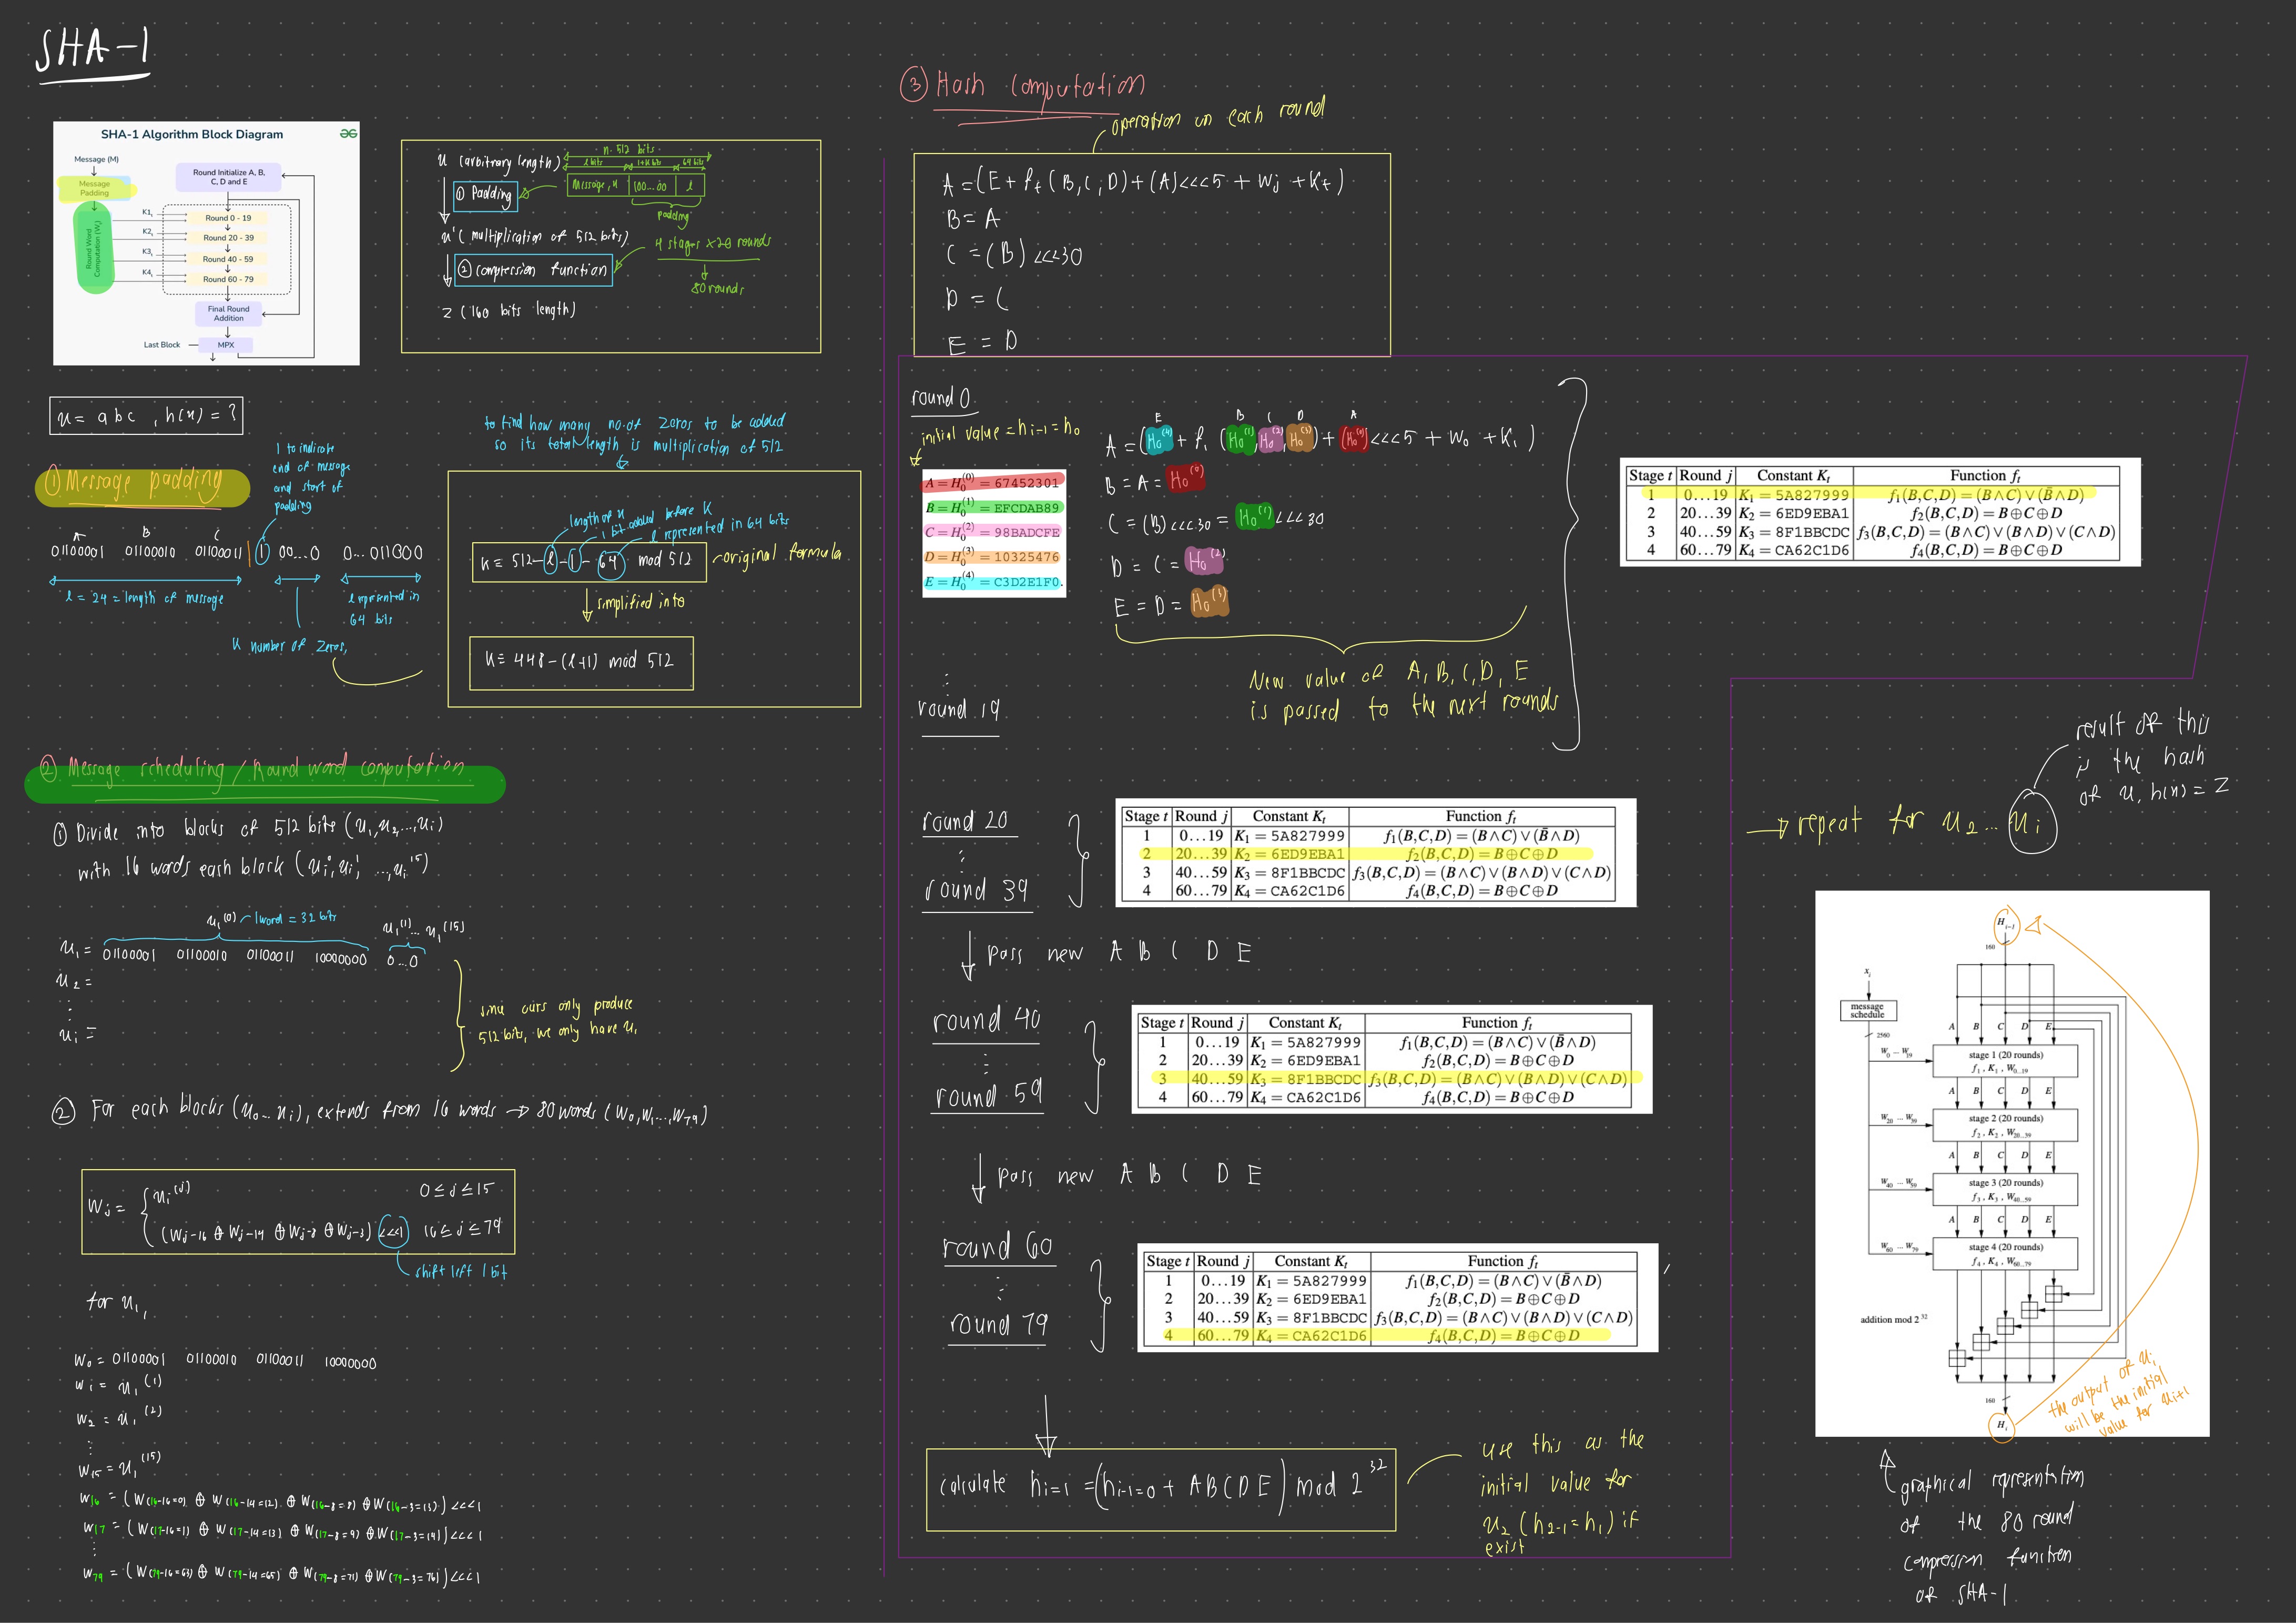 SHA-1
SHA-1 Algorithm Block Diagram
Message (M)
Message
Padding
Round Word
Computation (Wt)
Round Initialize A, B,
C, D and E
K1t
Round 0 - 19
K2t
Round 20 - 39
K3t
Round 40 - 59
K4t
Round 60 - 79
Final Round
Addition
Last Block
MPX
x (arbitrary length)
n. 512 bits
l bits 1+k bits 64 bits
① Padding
Message, x 100...00 l
padding
x' (multiplication of 512 bits)
4 stages x 20 rounds
② compression function
80 rounds
z (160 bits length)
x = abc , h(x) = ?
① Message padding
1 to indicate
end of message
and start of
padding
A B C
01100001 01100010 01100011 1 00...0 0...011000
l = 24 = length of message
l represented in
64 bits
k number of zeros,
to find how many no.of zeros to be added
so its total length is multiplication of 512
length of x
1 bit added before k
l represented in 64 bits
k ≡ 512-l-1-64 mod 512
original formula
simplified into
k ≡ 448-(l+1) mod 512
② Message scheduling / Round word computation
① Divide into blocks of 512 bits (x1,x2,...,xi)
with 16 words each block (xi⁰,xi¹,...,xi¹⁵)
x1(0) 1 word = 32 bits x1(1)... x1(15)
x1 = 01100001 01100010 01100011 10000000 0...0
x2 =
⋮
xi =
since ours only produce
512 bits, we only have x1
② For each blocks (x0...xi), extends from 16 words → 80 words (W0,W1...,W79)
Wj = { xi(j) 0 ≤ j ≤ 15
(Wj-16 ⊕ Wj-14 ⊕ Wj-8 ⊕ Wj-3) <<<1 16 ≤ j ≤ 79
shift left 1 bit
for x1,
W0 = 01100001 01100010 01100011 10000000
W1 = x1(1)
W2 = x1(2)
⋮
W15 = x1(15)
W16 = (W(16-16=0) ⊕ W(16-14=12) ⊕ W(16-8=8) ⊕ W(16-3=13)) <<<1
W17 = (W(17-16=1) ⊕ W(17-14=13) ⊕ W(17-8=9) ⊕ W(17-3=14)) <<<1
⋮
W79 = (W(79-16=63) ⊕ W(79-14=65) ⊕ W(79-8=71) ⊕ W(79-3=76)) <<<1
③ Hash computation
operation on each round
A = (E + ft (B, C, D) + (A)<<<5 + Wj + Kt)
B = A
C = (B) <<<30
D = C
E = D
round 0
initial value = hi-1 = h0
A = H0(0) = 67452301
B = H0(1) = EFCDAB89
C = H0(2) = 98BADCFE
D = H0(3) = 10325476
E = H0(4) = C3D2E1F0.
E B C D A
A = (H0(4) + f1 (H0(1), H0(2), H0(3)) + (H0(0))<<<5 + W0 + K1)
B = A = H0(0)
C = (B)<<<30 = H0(1)<<<30
D = C = H0(2)
E = D = H0(3)
New value of A, B, C, D, E
is passed to the next rounds
⋮
round 19
Stage t Round j Constant Kt Function ft
1 0...19 K1 = 5A827999 f1(B,C,D) = (B∧C)∨(B̄∧D)
2 20...39 K2 = 6ED9EBA1 f2(B,C,D) = B⊕C⊕D
3 40...59 K3 = 8F1BBCDC f3(B,C,D) = (B∧C)∨(B∧D)∨(C∧D)
4 60...79 K4 = CA62C1D6 f4(B,C,D) = B⊕C⊕D
round 20
⋮
round 39
Stage t Round j Constant Kt Function ft
1 0...19 K1 = 5A827999 f1(B,C,D) = (B∧C)∨(B̄∧D)
2 20...39 K2 = 6ED9EBA1 f2(B,C,D) = B⊕C⊕D
3 40...59 K3 = 8F1BBCDC f3(B,C,D) = (B∧C)∨(B∧D)∨(C∧D)
4 60...79 K4 = CA62C1D6 f4(B,C,D) = B⊕C⊕D
pass new A B C D E
round 40
⋮
round 59
Stage t Round j Constant Kt Function ft
1 0...19 K1 = 5A827999 f1(B,C,D) = (B∧C)∨(B̄∧D)
2 20...39 K2 = 6ED9EBA1 f2(B,C,D) = B⊕C⊕D
3 40...59 K3 = 8F1BBCDC f3(B,C,D) = (B∧C)∨(B∧D)∨(C∧D)
4 60...79 K4 = CA62C1D6 f4(B,C,D) = B⊕C⊕D
pass new A B C D E
round 60
⋮
round 79
Stage t Round j Constant Kt Function ft
1 0...19 K1 = 5A827999 f1(B,C,D) = (B∧C)∨(B̄∧D)
2 20...39 K2 = 6ED9EBA1 f2(B,C,D) = B⊕C⊕D
3 40...59 K3 = 8F1BBCDC f3(B,C,D) = (B∧C)∨(B∧D)∨(C∧D)
4 60...79 K4 = CA62C1D6 f4(B,C,D) = B⊕C⊕D
calculate hi=1 = (hi-1=0 + ABCDE) mod 2^32
use this as the
initial value for
x2 (h2-1 = h1) if
exist
result of this
is the hash
of x, h(x) = z
→ repeat for x2... xi
Hi-1
160
xi
message
schedule
2560
A B C D E
W0 ... W19
stage 1 (20 rounds)
f1 , K1 , W0...19
A B C D E
W20 ... W39
stage 2 (20 rounds)
f2 , K2 , W20...39
A B C D E
W40 ... W59
stage 3 (20 rounds)
f3 , K3 , W40...59
A B C D E
W60 ... W79
stage 4 (20 rounds)
f4 , K4 , W60...79
addition mod 2^32
160
Hi
the output of xi
will be the initial
value for xi+1
graphical representation
of the 80 round
compression function
of SHA-1